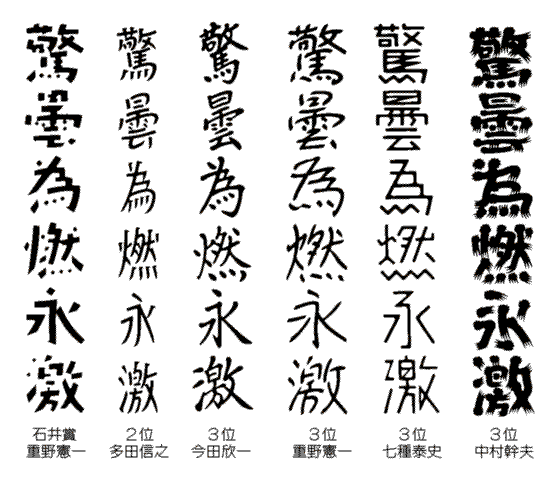 驚 驚 驚 驚 驚 驚
曇 曇 曇 曇 曇 曇
為 為 為 為 為 為
燃 燃 燃 燃 燃 燃
永 永 永 永 永 永
激 激 激 激 激 激
石井賞 2位 3位 3位 3位 3位
重野憲一 多田信之 今田欣一 重野憲一 七種泰史 中村幹夫